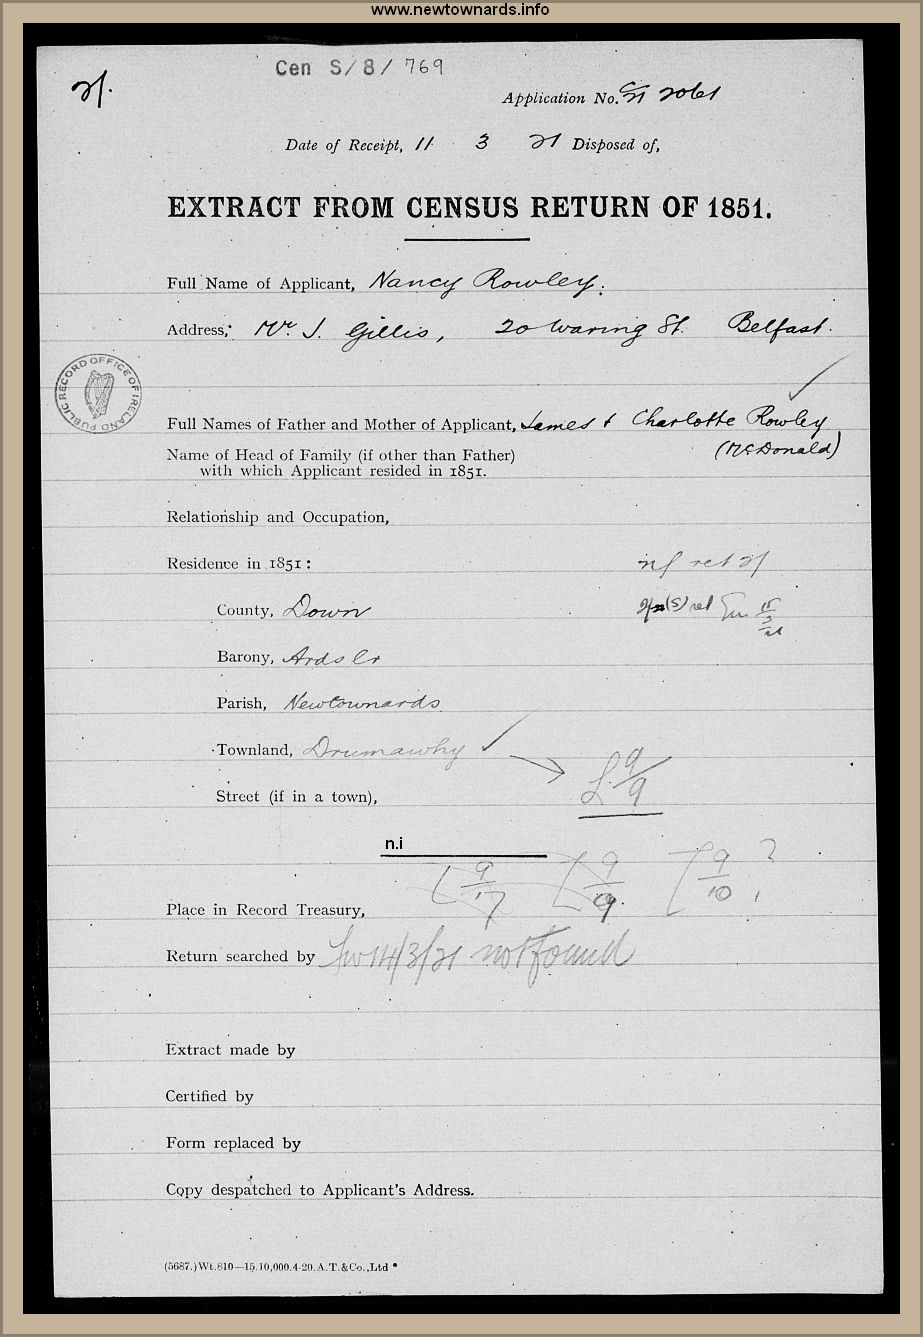 www.newtownards.info
Cen S/8/769
21.
Application No. C/21 2061
Date of Receipt, 11 3 21 Disposed of,
EXTRACT FROM CENSUS RETURN OF 1851.
Full Name of Applicant, Nancy Rowley.
Address, Mr. J. Gillis, 20 Waring St. Belfast.
PUBLIC RECORD OFFICE OF IRELAND
Full Names of Father and Mother of Applicant, James & Charlotte Rowley
(McDonald)
Name of Head of Family (if other than Father)
with which Applicant resided in 1851.
Relationship and Occupation,
Residence in 1851:
nf ret 21
County, Down
Barony, Ards Lr
Parish, Newtownards
Townland, Drumawhy
9/9
Street (if in a town),
n.i
9/17 9/9 9/10 ?
Place in Record Treasury,
Return searched by 14/3/21 not found
Extract made by
Certified by
Form replaced by
Copy despatched to Applicant's Address.
(5687.)Wt.810—15.10,000.4-20.A.T.&Co.,Ltd